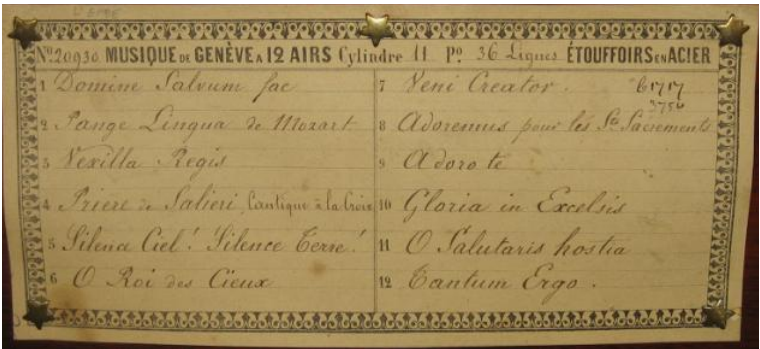 No. 20930. MUSIQUE DE GENÈVE A 12 AIRS Cylindre 11 Po. 36 Lignes ÉTOUFFOIRS EN ACIER
1 Domine Salvum fac
2 Pange Lingua de Mozart
3 Vexilla Regis
4 Priere de Salieri, Cantique à la Croix
5 Silence Ciel! Silence Terre!
6 O Roi des Cieux
7 Veni Creator.
8 Adoremus pour les St. Sacrements
9 Adoro te
10 Gloria in Excelsis
11 O Salutaris hostia
12 Tantum Ergo.